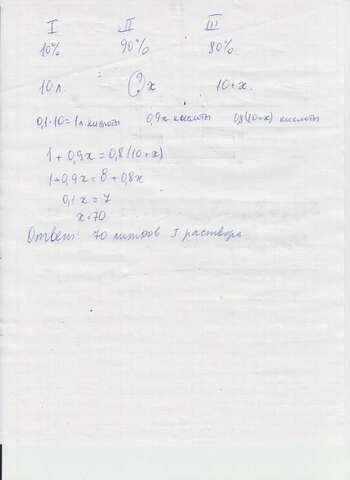 I II III
10% 90% 80%.
10 л. ? x 10+x.
0,1·10=1л кислоты 0,9x кислоты 0,8(10+x) кислоты
1+0,9x=0,8(10+x)
1+0,9x=8+0,8x
0,1x=7
x=70
Ответ: 70 литров I раствора